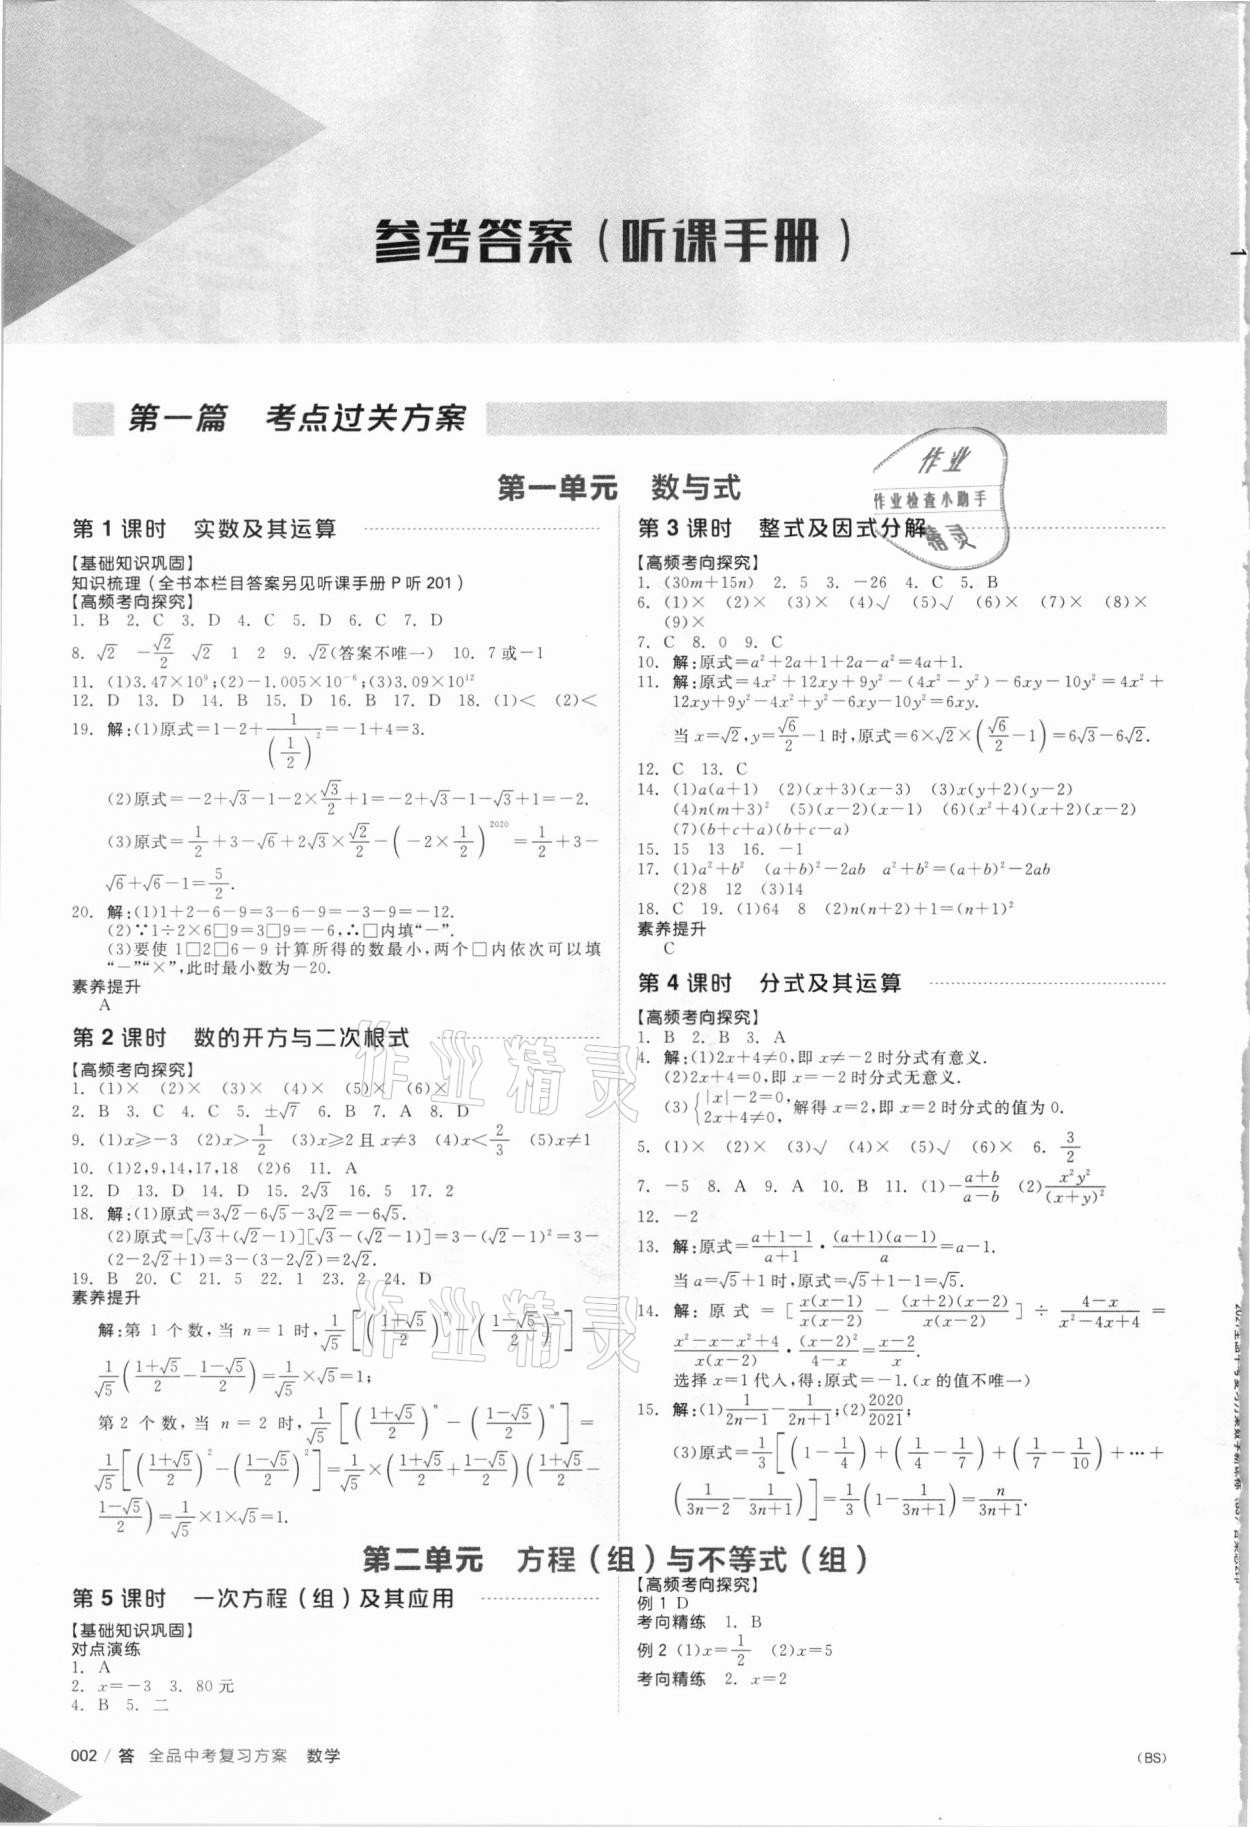 参考答案（听课手册）
第一篇 考点过关方案
第一单元 数与式
第 1 课时 实数及其运算
【基础知识巩固】
知识梳理（全书本栏目答案另见听课手册 P 听 201）
【高频考向探究】
1. B 2. C 3. D 4. C 5. D 6. C 7. D
8. √2 -√2/2 √2 1 2 9. √2(答案不唯一) 10. 7 或-1
11. (1)3.47×10⁹;(2)-1.005×10⁻⁶;(3)3.09×10¹²
12. D 13. D 14. B 15. D 16. B 17. D 18. (1)< (2)<
19. 解:(1)原式=1-2+1/(1/2)²=-1+4=3.
(2)原式=-2+√3-1-2×√3/2+1=-2+√3-1-√3+1=-2.
(3)原式=1/2+3-√6+2√3×√2/2-(-2×1/2)²⁰²⁰=1/2+3-
√6+√6-1=5/2.
20. 解:(1)1+2-6-9=3-6-9=-3-9=-12.
(2)∵1÷2×6□9=3□9=-6,∴□内填“-”.
(3)要使 1□2□6-9 计算所得的数最小,两个□内依次可以填
“-”“×”,此时最小数为-20.
素养提升
A
第 2 课时 数的开方与二次根式
【高频考向探究】
1. (1)× (2)× (3)× (4)× (5)× (6)×
2. B 3. C 4. C 5. ±√7 6. B 7. A 8. D
9. (1)x≥-3 (2)x>1/2 (3)x≥2 且 x≠3 (4)x<2/3 (5)x≠1
10. (1)2,9,14,17,18 (2)6 11. A
12. D 13. D 14. D 15. 2√3 16. 5 17. 2
18. 解:(1)原式=3√2-6√5-3√2=-6√5.
(2)原式=[√3+(√2-1)][√3-(√2-1)]=3-(√2-1)²=3-
(2-2√2+1)=3-(3-2√2)=2√2.
19. B 20. C 21. 5 22. 1 23. 2 24. D
素养提升
解:第 1 个数,当 n=1 时,1/√5[((1+√5)/2)ⁿ-((1-√5)/2)ⁿ]=
1/√5((1+√5)/2-(1-√5)/2)=1/√5×√5=1;
第 2 个数,当 n=2 时,1/√5[((1+√5)/2)ⁿ-((1-√5)/2)ⁿ]=
1/√5[((1+√5)/2)²-((1-√5)/2)²]=1/√5×((1+√5)/2+(1-√5)/2)((1+√5)/2-
(1-√5)/2)=1/√5×1×√5=1.
第 3 课时 整式及因式分解
【高频考向探究】
1. (30m+15n) 2. 5 3. -26 4. C 5. B
6. (1)× (2)× (3)× (4)√ (5)√ (6)× (7)× (8)×
(9)×
7. C 8. 0 9. C
10. 解:原式=a²+2a+1+2a-a²=4a+1.
11. 解:原式=4x²+12xy+9y²-(4x²-y²)-6xy-10y²=4x²+
12xy+9y²-4x²+y²-6xy-10y²=6xy.
当 x=√2,y=√6/2-1 时,原式=6×√2×(√6/2-1)=6√3-6√2.
12. C 13. C
14. (1)a(a+1) (2)(x+3)(x-3) (3)x(y+2)(y-2)
(4)n(m+3)² (5)(x-2)(x-1) (6)(x²+4)(x+2)(x-2)
(7)(b+c+a)(b+c-a)
15. 15 13 16. -1
17. (1)a²+b² (a+b)²-2ab a²+b²=(a+b)²-2ab
(2)8 12 (3)14
18. C 19. (1)64 8 (2)n(n+2)+1=(n+1)²
素养提升
C
第 4 课时 分式及其运算
【高频考向探究】
1. B 2. B 3. A
4. 解:(1)2x+4≠0,即 x≠-2 时分式有意义.
(2)2x+4=0,即 x=-2 时分式无意义.
(3){|x|-2=0, 2x+4≠0, 解得 x=2,即 x=2 时分式的值为 0.
5. (1)× (2)× (3)√ (4)× (5)√ (6)× 6. 3/2
7. -5 8. A 9. A 10. B 11. (1)-(a+b)/(a-b) (2)x²y²/(x+y)²
12. -2
13. 解:原式=(a+1-1)/(a+1)·(a+1)(a-1)/a=a-1.
当 a=√5+1 时,原式=√5+1-1=√5.
14. 解:原式=[x(x-1)/x(x-2)-(x+2)(x-2)/x(x-2)]÷(4-x)/(x²-4x+4)=
(x²-x-x²+4)/x(x-2)·(x-2)²/(4-x)=(x-2)/x.
选择 x=1 代入,得:原式=-1.(x 的值不唯一)
15. 解:(1)1/(2n-1)-1/(2n+1);(2)2020/2021;
(3)原式=1/3[(1-1/4)+(1/4-1/7)+(1/7-1/10)+…+
(1/(3n-2)-1/(3n+1))]=1/3(1-1/(3n+1))=n/(3n+1).
第二单元 方程（组）与不等式（组）
第 5 课时 一次方程（组）及其应用
【基础知识巩固】
对点演练
1. A
2. x=-3 3. 80 元
4. B 5. 二
【高频考向探究】
例 1 D
考向精练 1. B
例 2 (1)x=1/2 (2)x=5
考向精练 2. x=2
002 / 答 全品中考复习方案 数学
(BS)
作业
作业检查小助手
精灵
作业精灵
作业精灵
1